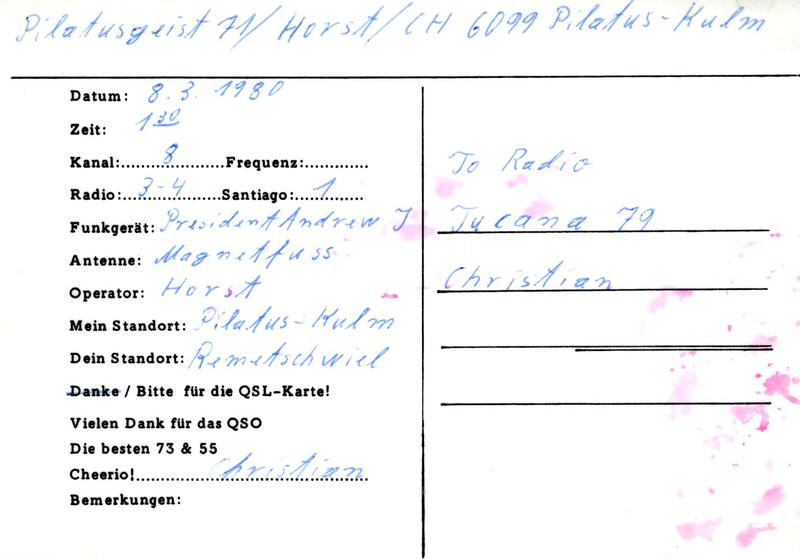 Pilatusgeist 71/ Horst/ CH 6099 Pilatus-Kulm
Datum: 8.3. 1980
Zeit: 1 30
Kanal:......8.......Frequenz:............
Radio:..3-4.......Santiago:..1......
Funkgerät: President Andrew J
Antenne: Magnetfuss
Operator: Horst
Mein Standort: Pilatus-Kulm
Dein Standort: Remetschwiel
Danke / Bitte für die QSL-Karte!
Vielen Dank für das QSO
Die besten 73 & 55
Cheerio!............Christian
Bemerkungen:
To Radio
Tucana 79
Christian